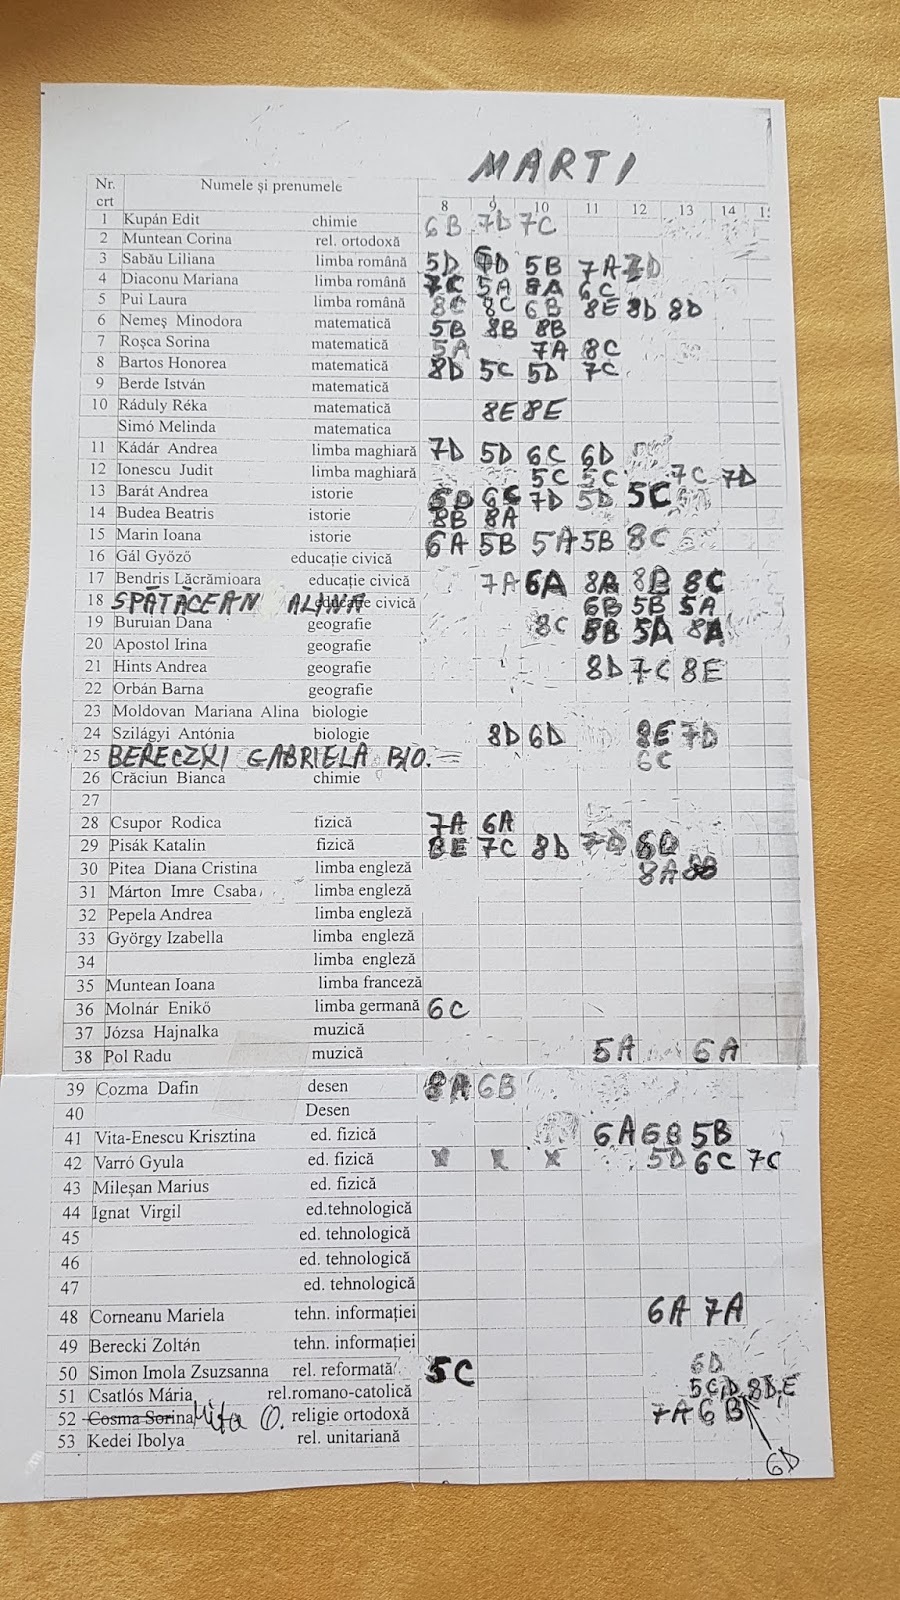 MARTI
Nr. crt Numele și prenumele 8 9 10 11 12 13 14
1 Kupán Edit chimie 6B 7D 7C
2 Muntean Corina rel. ortodoxă
3 Sabău Liliana limba română 5D 5B 7A
4 Diaconu Mariana limba română 7C 5A 8A 6C
5 Pui Laura limba română 8C 8C 6B 8E 8D 8D
6 Nemeș Minodora matematică 5B 8B 8B
7 Roșca Sorina matematică 5A 7A 8C
8 Bartos Honorea matematică 8D 5C 5D 7C
9 Berde István matematică
10 Ráduly Réka matematică 8E 8E
Simó Melinda matematica
11 Kádár Andrea limba maghiară 7D 5D 6C 6D
12 Ionescu Judit limba maghiară 5C 5C 7C 7D
13 Barát Andrea istorie 6C 7D 5D 5C
14 Budea Beatris istorie 8B 8A
15 Marin Ioana istorie 6A 5B 5A 5B 8C
16 Gál Győző educație civică
17 Bendris Lăcrămioara educație civică 7A 6A 8A 8B 8C
18 SPĂTĂCEAN ALINA educație civică 6B 5B 5A
19 Buruian Dana geografie 8C 5B 5A 8A
20 Apostol Irina geografie
21 Hints Andrea geografie 8D 7C 8E
22 Orbán Barna geografie
23 Moldovan Mariana Alina biologie
24 Szilágyi Antónia biologie 8D 6D 8E 7D
25 BERECZKI GABRIELA BIO. 6C
26 Crăciun Bianca chimie
27
28 Csupor Rodica fizică 7A 6A
29 Pisák Katalin fizică 8E 7C 8D 7D 6D
30 Pitea Diana Cristina limba engleză 8A 8B
31 Márton Imre Csaba limba engleză
32 Pepela Andrea limba engleză
33 György Izabella limba engleză
34 limba engleză
35 Muntean Ioana limba franceză
36 Molnár Enikő limba germană 6C
37 Józsa Hajnalka muzică
38 Pol Radu muzică 5A 6A
39 Cozma Dafin desen 8A 6B
40 Desen
41 Vita-Enescu Krisztina ed. fizică 6A 6B 5B
42 Varró Gyula ed. fizică x x x 5D 6C 7C
43 Mileșan Marius ed. fizică
44 Ignat Virgil ed.tehnologică
45 ed. tehnologică
46 ed. tehnologică
47 ed. tehnologică
48 Corneanu Mariela tehn. informației 6A 7A
49 Berecki Zoltán tehn. informației
50 Simon Imola Zsuzsanna rel. reformată 5C 6D
51 Csatlós Mária rel.romano-catolică 5C,D 8D,E
52 Cosma Sorina Mita O. religie ortodoxă 7A 6B
53 Kedei Ibolya rel. unitariană
6D